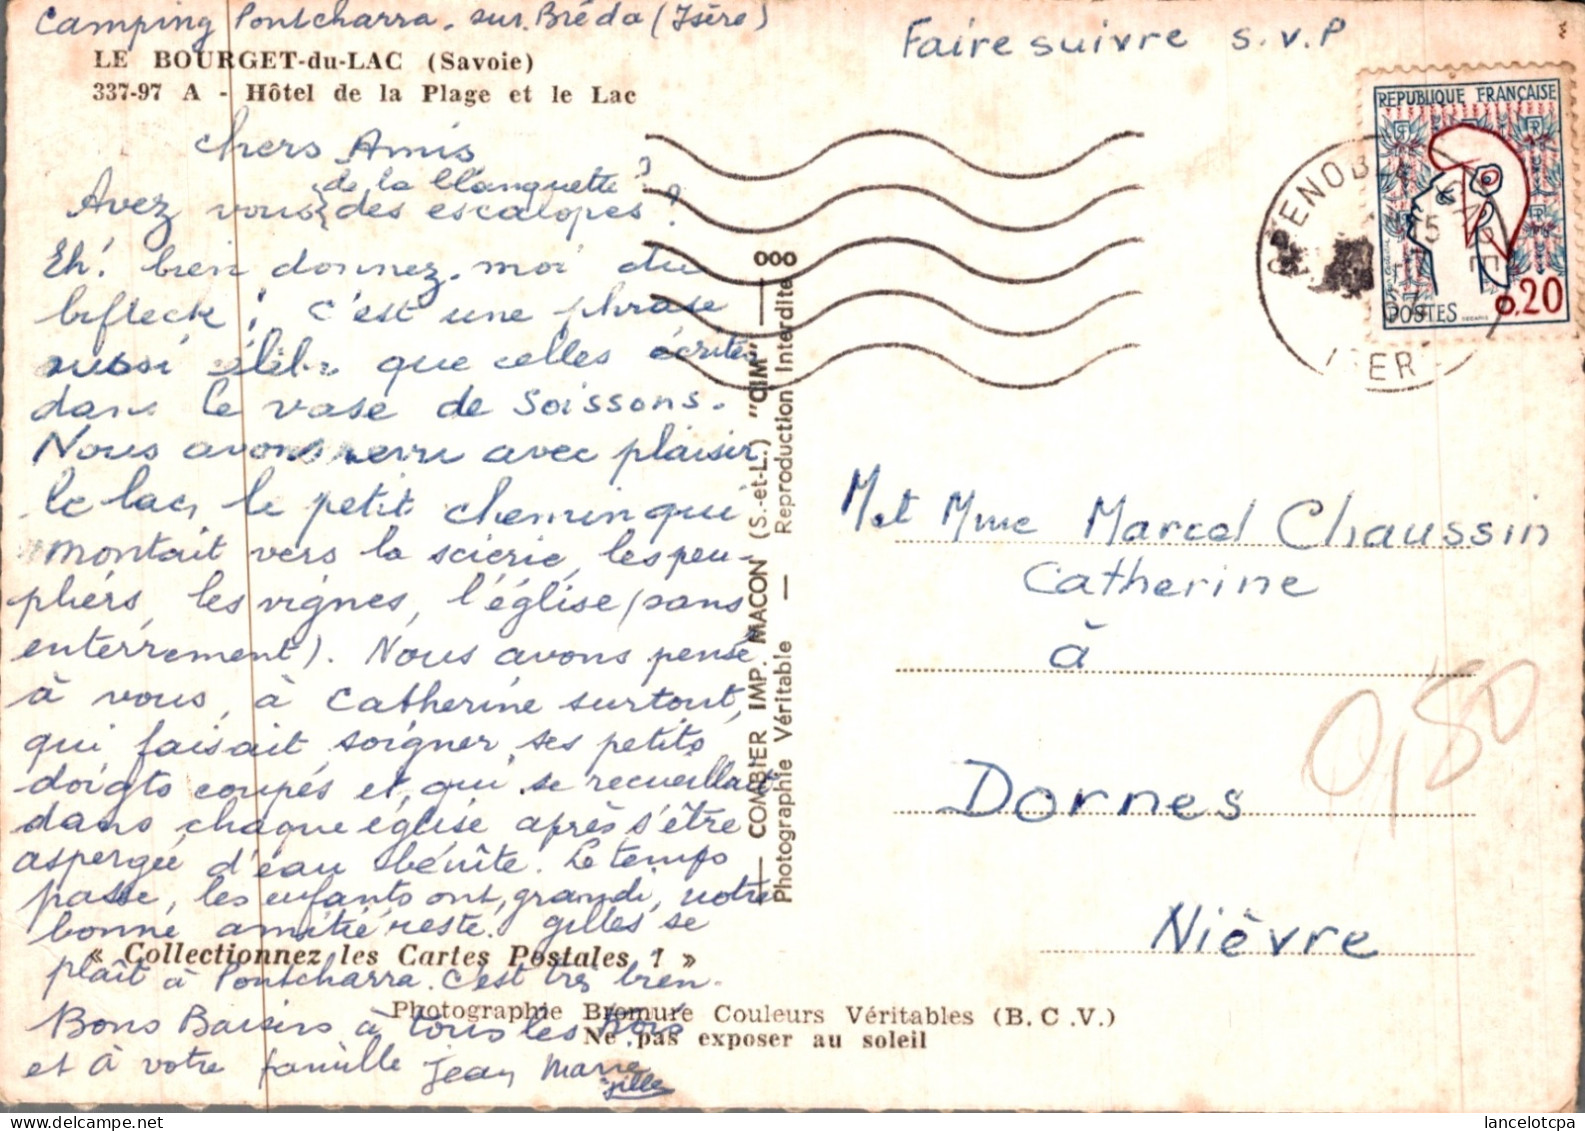 Camping Pontcharra. sur. Bréda (Isère)
LE BOURGET-du-LAC (Savoie)
337-97 A - Hôtel de la Plage et le Lac
Faire suivre s.v.P
chers Amis
de la blanquette?
Avez vous des escalopes?
Eh! bien donnez-moi du
bifteck! C'est une phrase
aussi que celles écrites
dans le vase de Soissons.
Nous avons revu avec plaisir
le lac, le petit chemin qui
montait vers la scierie, les peu-
pliers, les vignes, l'église (sans
enterrement). Nous avons pensé
à vous, à Catherine surtout,
qui faisait soigner ses petits
doigts coupés et, qui se recueillait
dans chaque église après s'être
aspergée d'eau bénite. Le temps
passe, les enfants ont grandi, notre
bonne amitié reste. Gilles se
« Collectionnez les Cartes Postales ! »
plaît à Pontcharra. C'est très bien.
Photographie Bromure Couleurs Véritables (B.C.V.)
Bons Baisers à tous les trois
Ne pas exposer au soleil
et à votre famille Jean Marie
Gilles
— COMBIER IMP. MACON (S.-et-L.) "CIM" —
Photographie Véritable — Reproduction Interdite
000
GRENOBLE GARE
15
ISERE
REPUBLIQUE FRANÇAISE
POSTES
0.20
M et Mme Marcel Chaussin
Catherine
à
Dornes
Nièvre
0,80
lancelotcpa